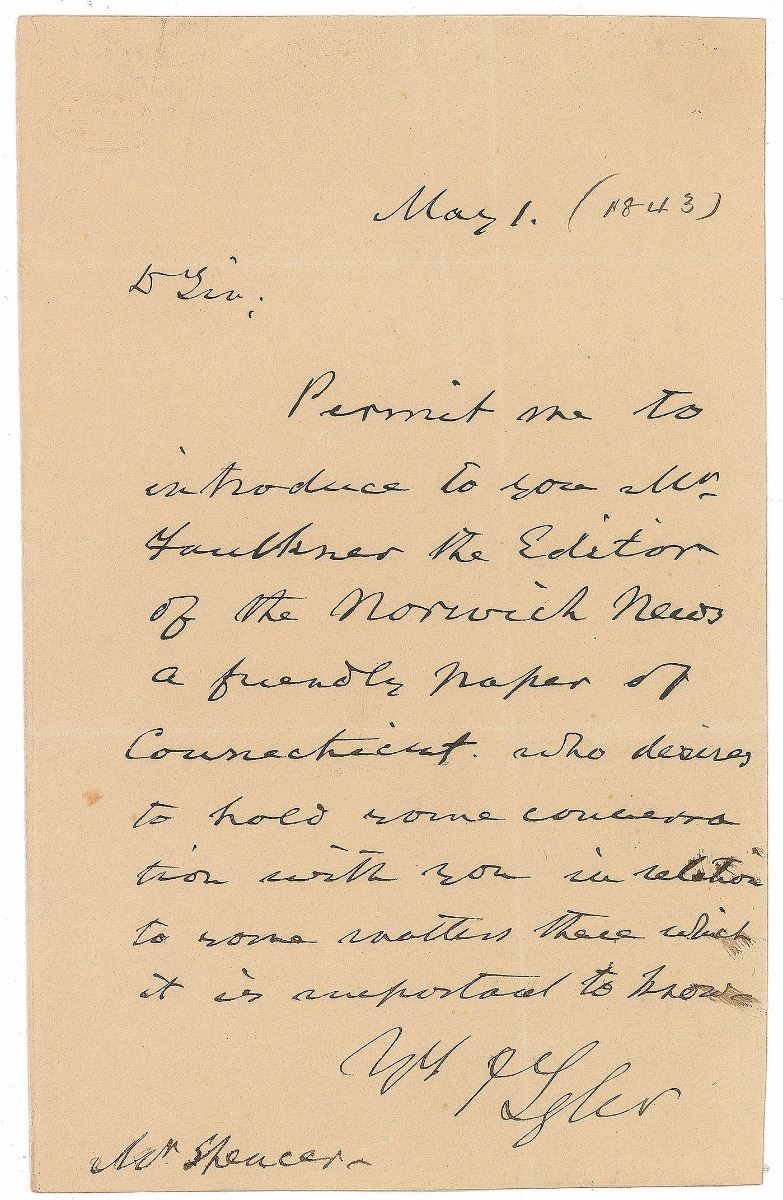 May 1. (1843)
Dr Sir;
Permit me to
introduce to you Mr
Faulkner the Editor
of the Norwich News
a friendly paper of
Connecticut. who desires
to hold some conversa
tion with you in relation
to some matters there which
it is important to know
Yrs J Tyler
Mr Spencer